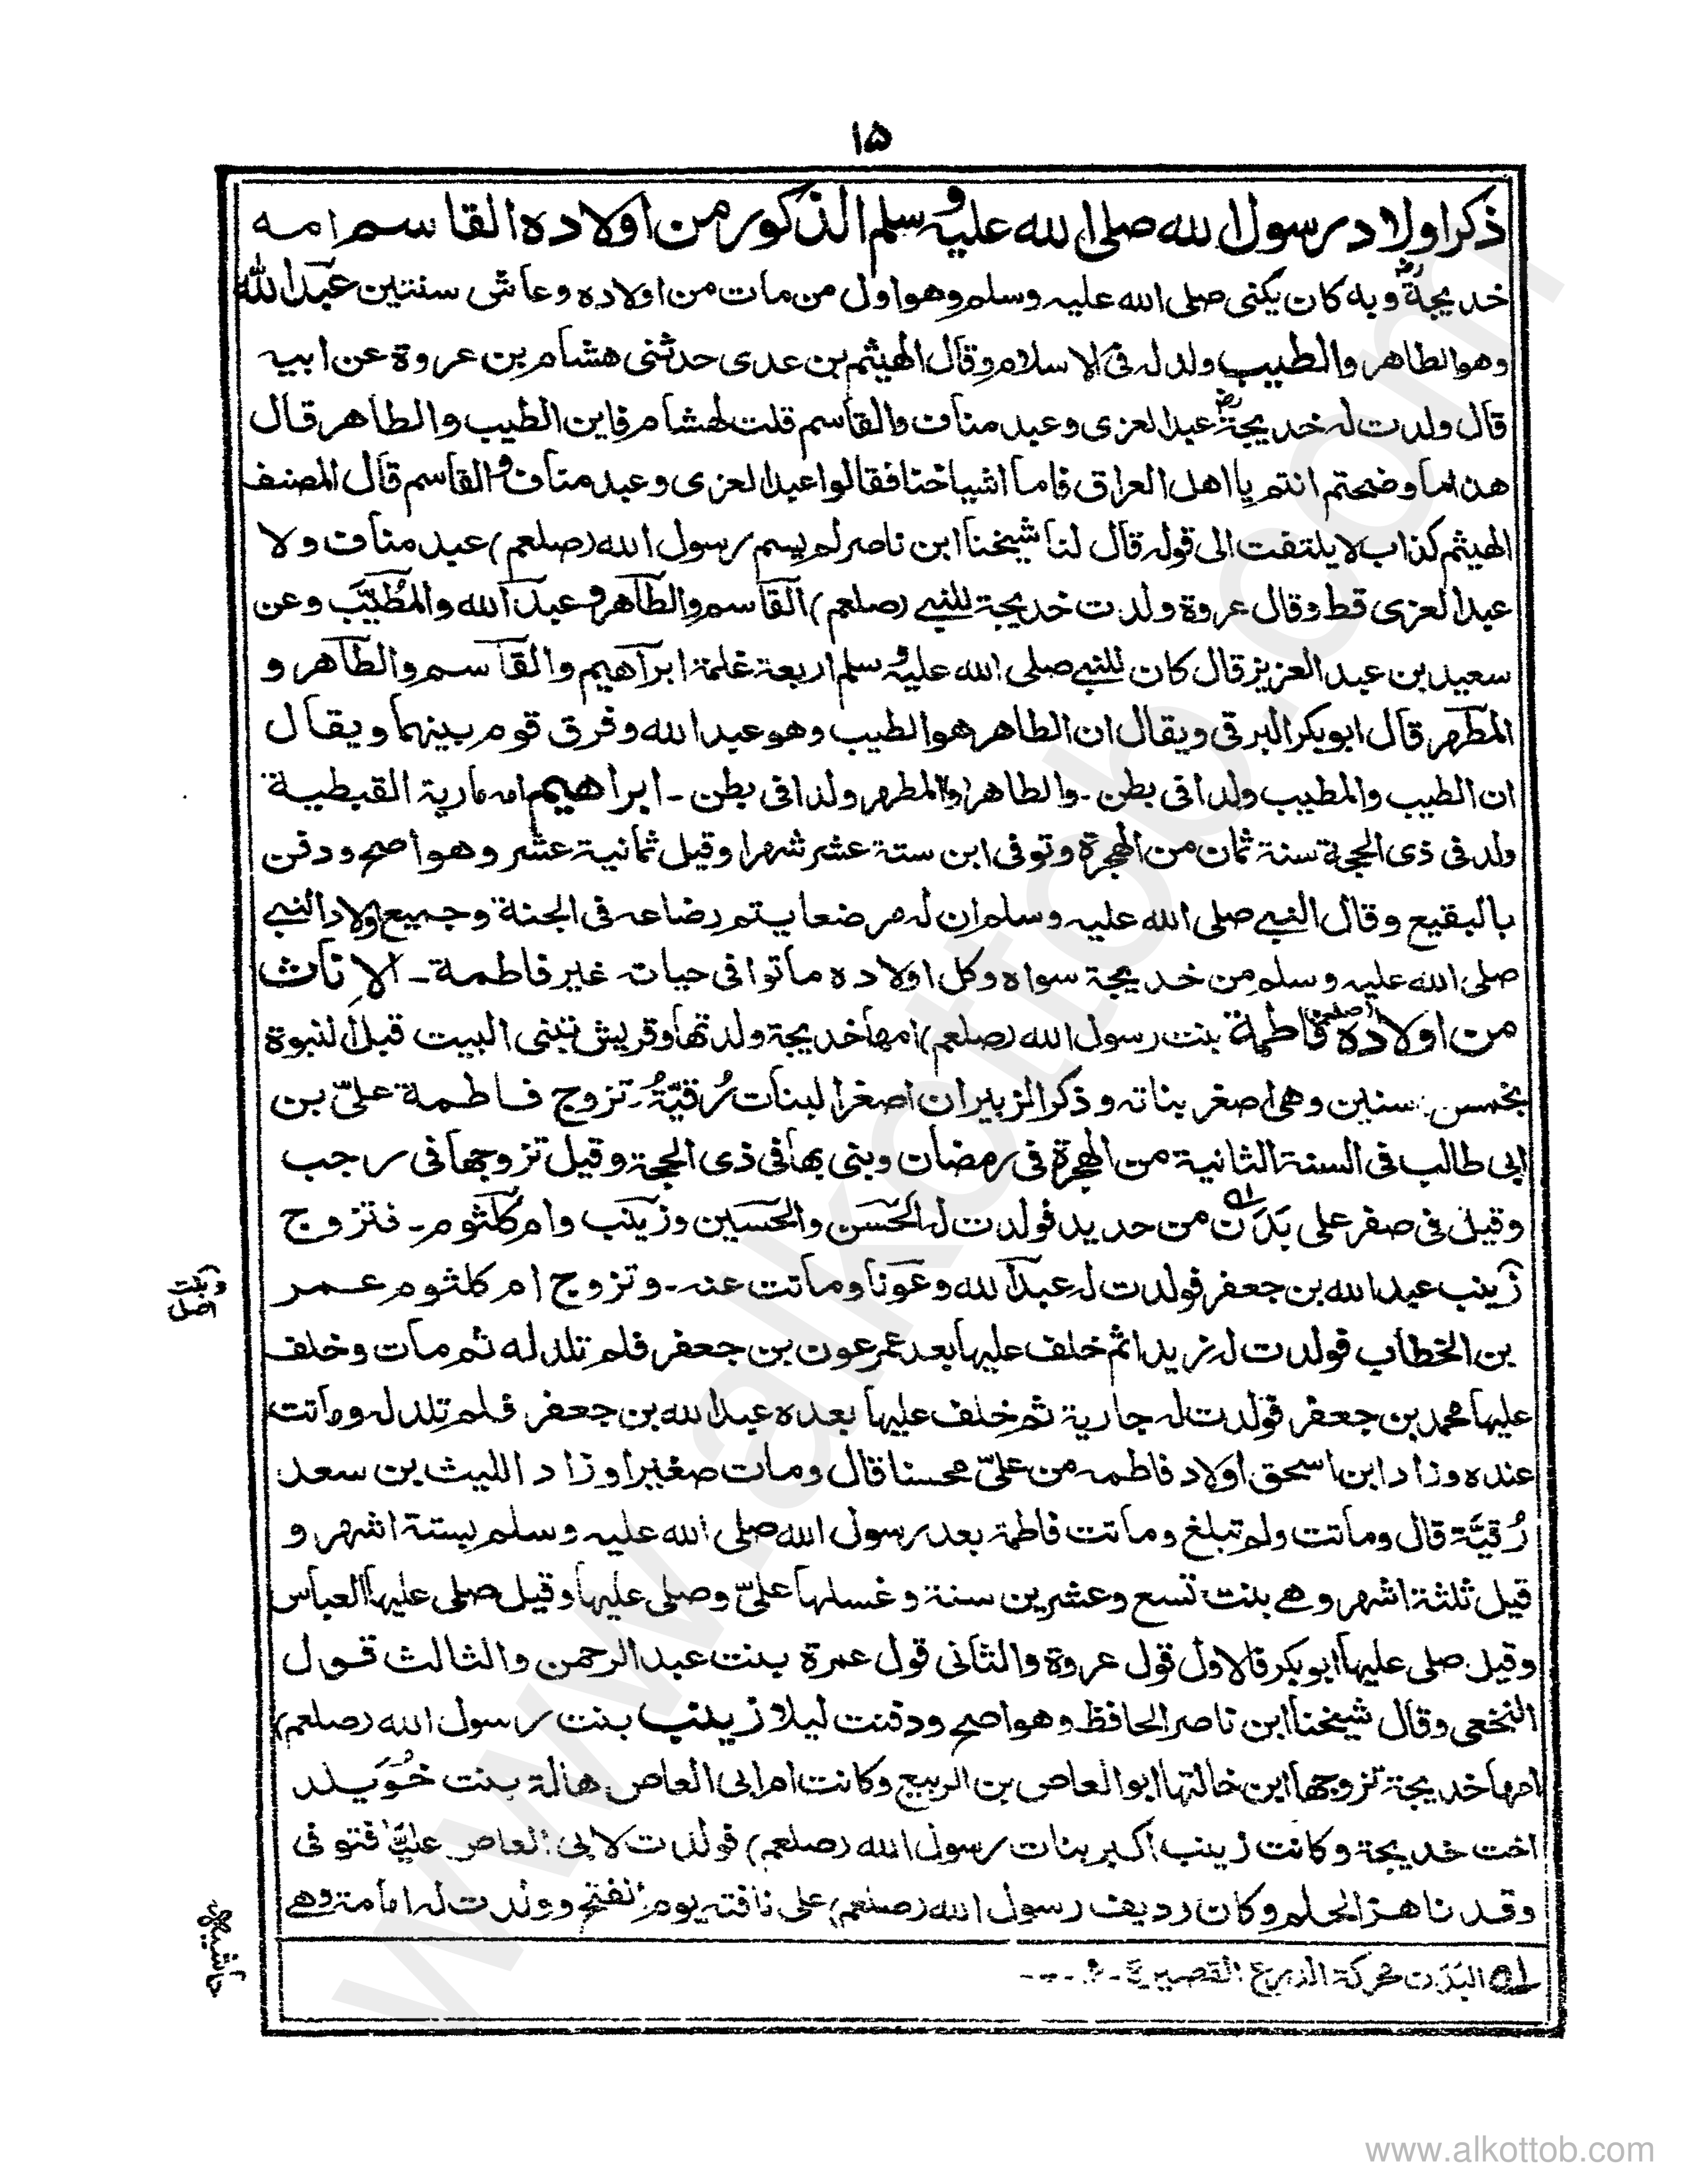 ١٥
ذكر اولاد رسول الله صلى الله عليه وسلم الذكور من اولاده القاسم امه
خديجة رض وبه كان يكنى صلى الله عليه وسلم وهو اول من مات من اولاده وعاش سنتين عبد الله
وهو الطاهر والطيب ولد له فى الاسلام وقال الهيثم بن عدى حدثنى هشام بن عروة عن ابيه
قال ولدت له خديجة رض عبد العزى وعبد مناف والقاسم قلت لهشام فاين الطيب والطاهر قال
هذا ما وضعتم انتم يا اهل العراق فاما اشياخنا فقالوا عبد العزى وعبد مناف والقاسم قال المصنف
الهيثم كذاب لا يلتفت الى قوله قال لنا شيخنا ابن ناصر لم يسم رسول الله (صلعم) عبد مناف ولا
عبد العزى قط وقال عروة ولدت خديجة للنبى (صلعم) القاسم والطاهر وعبد الله والمُطَيَّب وعن
سعيد بن عبد العزيز قال كان للنبى صلى الله عليه وسلم اربعة غلمة ابراهيم والقاسم والطاهر و
المطهر قال ابوبكر البرقى ويقال ان الطاهر هو الطيب وهو عبد الله وفرق قوم بينهما ويقال
ان الطيب والمطيب ولدا فى بطن ـ والطاهر والمطهر ولدا فى بطن ـ ابراهيم امه مارية القبطية
ولد فى ذى الحجة سنة ثمان من الهجرة وتوفى ابن ستة عشر شهرا وقيل ثمانية عشر وهو اصح ودفن
بالبقيع وقال النبى صلى الله عليه وسلم ان له مرضعا يتم رضاعه فى الجنة وجميع اولاد النبى
صلى الله عليه وسلم من خديجة سواه وكل اولاده ماتوا فى حياته غير فاطمة ـ الاناث
من اولاده (صلعم) فاطمة بنت رسول الله (صلعم) امها خديجة ولدتها وقريش تبنى البيت قبل النبوة
بخمس سنين وهى اصغر بناته وذكر الزبير ان اصغر البنات رُقيّةُ ـ تزوج فاطمة علىّ بن
ابى طالب فى السنة الثانية من الهجرة فى رمضان وبنى بها فى ذى الحجة وقيل تزوجها فى رجب
وقيل فى صفر على بَدَن له من حديد فولدت له الحَسَن والحسين وزينب وام كلثوم ـ فتزوج
زينب عبد الله بن جعفر فولدت له عبد الله وعَونا وماتت عنده ـ وتزوج ام كلثوم عمر
وبنت
اصل
بن الخطاب فولدت له زيدا ثم خلف عليها بعد عمر عون بن جعفر فلم تلد له ثم مات وخلف
عليها محمد بن جعفر فولدت له جارية ثم خلف عليها بعده عبد الله بن جعفر فلم تلد له وماتت
عنده وزاد ابن اسحق اولاد فاطمه من علىّ محسنا قال ومات صغيرا وزاد الليث بن سعد
رُقيَّة قال وماتت ولم تبلغ وماتت فاطمة بعد رسول الله صلى الله عليه وسلم بستة اشهر و
قيل ثلثة اشهر وهى بنت تسع وعشرين سنة وغسلها علىّ وصلى عليها وقيل صلى عليها العباس
وقيل صلى عليها ابوبكر فالاول قول عروة والثانى قول عمرة بنت عبد الرحمن والثالث قول
النخعى وقال شيخنا ابن ناصر الحافظ وهو اصح ودفنت ليلا زينب بنت رسول الله (صلعم)
امها خديجة تزوجها ابن خالتها ابو العاص بن الربيع وكانت ام ابى العاص هالة بنت خُوَيلد
اخت خديجة وكانت زينب اكبر بنات رسول الله (صلعم) فولدت لابى العاص عليّا فتوفى
وقد ناهز الحلم وكان رديف رسول الله (صلعم) على ناقته يوم الفتح وولدت له امامة وهى
حاشيه
له البَدَن محركة الدرع القصيرة ـ
www.alkottob.com
www.alkottob.com